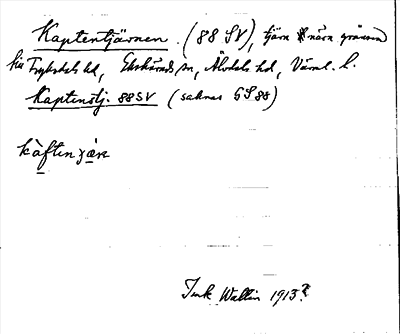 Kaptentjärnen. (88 SV), tjärn nära gränsen
till Fryksdals hd, Ekshärads sn, Älvdals hd, Värml. l.
Kaptenstj. 88SV (saknas GS 88)
kàftenjäṇ
Ink Wallin 1913?